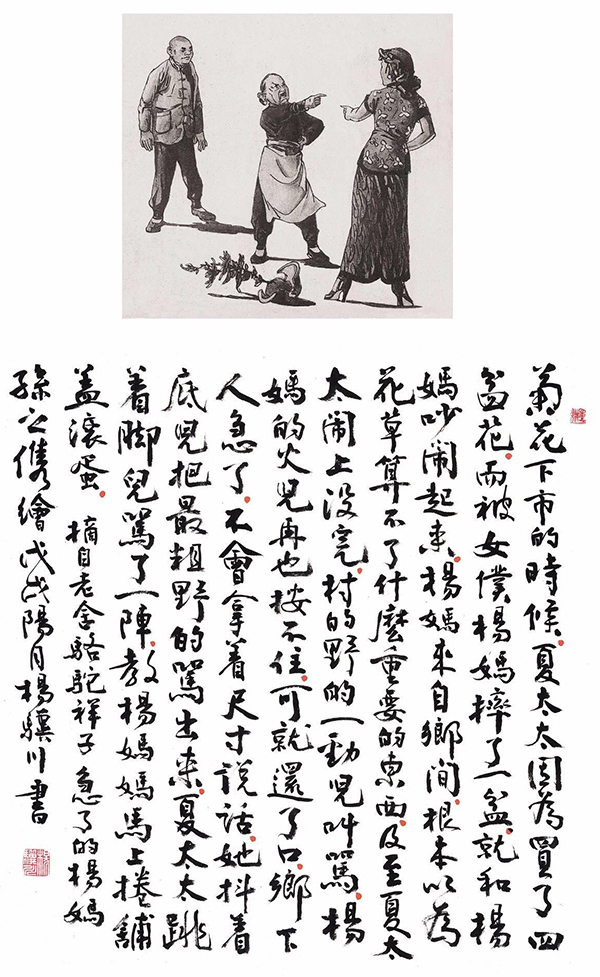 菊花下市的時候夏太太因為買了四
盆花而被女僕楊媽摔了一盆就和楊
媽吵鬧起来楊媽来自鄉間根本以為
花草算不了什麼重要的東西及至夏太
太鬧上没完村的野的一勁兒叫罵楊
媽的火兒再也按不住可就還了口鄉下
人急了不會拿着尺寸說話她抖着
底兒把最粗野的罵出来夏太太跳
着脚兒罵了一陣教楊媽馬上捲舖
盖滚蛋 摘自老舍駱駝祥子急了的楊媽
孫之儁繪戊戌陽月楊驥川書